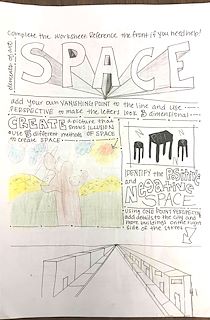 Complete the worksheet. Reference the front if you need help!
elements of art
SPACE
add your own VANISHING POINT to the line and use
PERSPECTIVE to make the letters look 3 dimensional
CREATE a picture that
shows ILLUSION
of
use 3 different methods of SPACE
to create SPACE
IDENTIFY the POSITIVE
and
NEGATIVE
SPACE
USING ONE POINT PERSPECTIVE
add details to the city and
more buildings on the right
side of the street